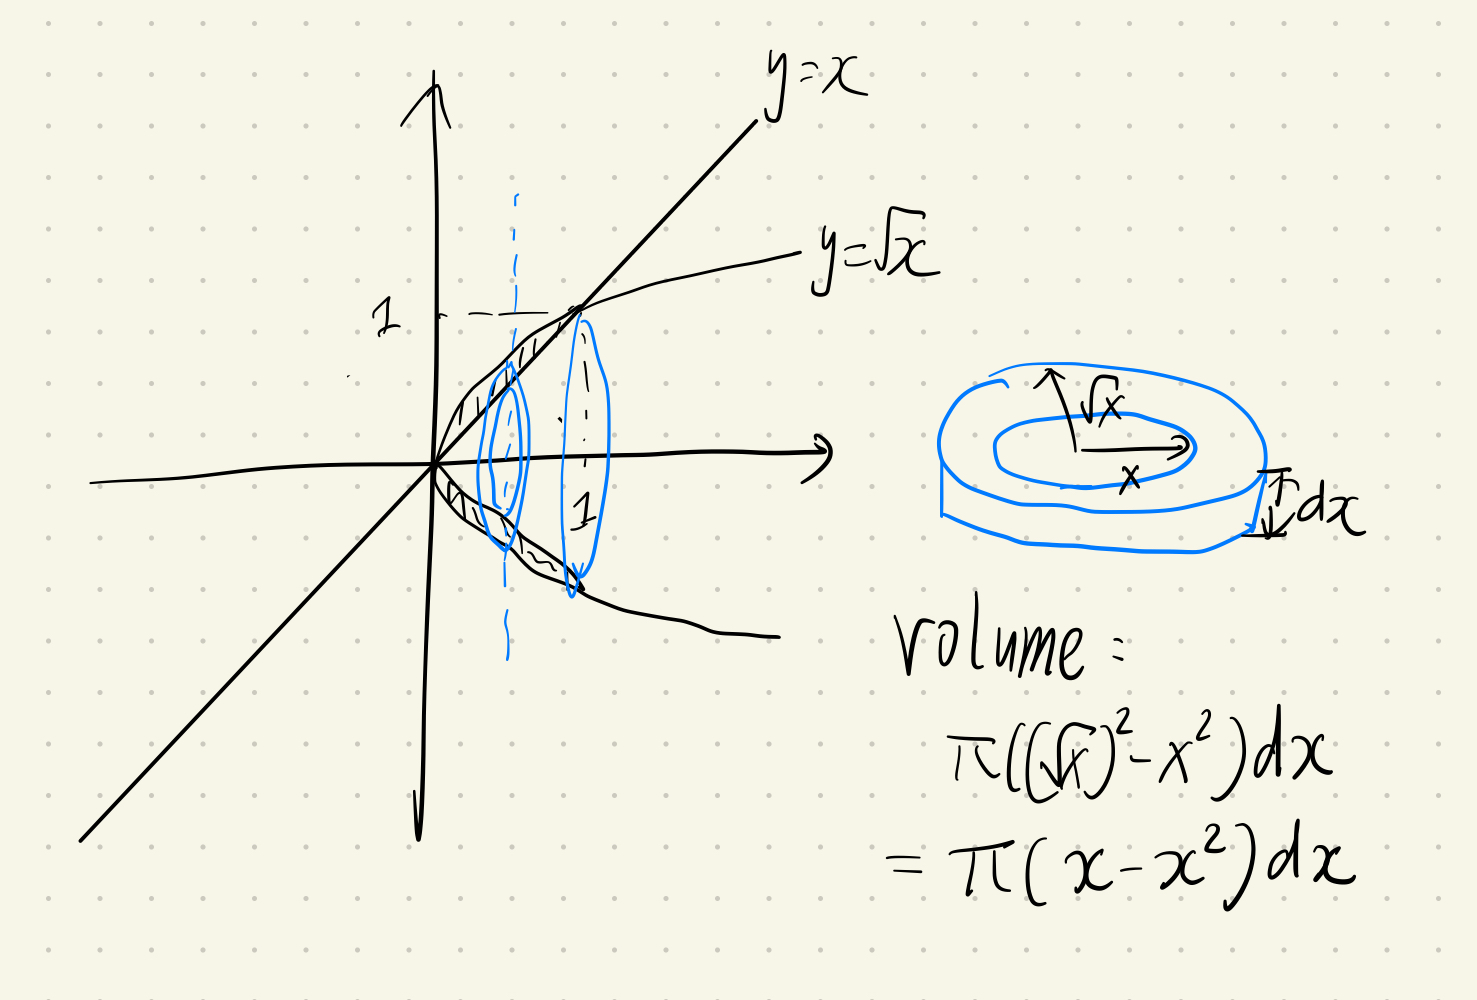 y=x
y=√x
1
1
√x
x
dx
volume:
π((√x)²-x²)dx
=π(x-x²)dx